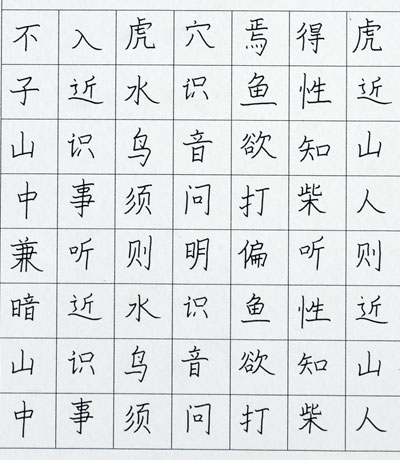 不入虎穴焉得虎
子近水识鱼性近
山识鸟音欲知山
中事须问打柴人
兼听则明偏听则
暗近水识鱼性近
山识鸟音欲知山
中事须问打柴人